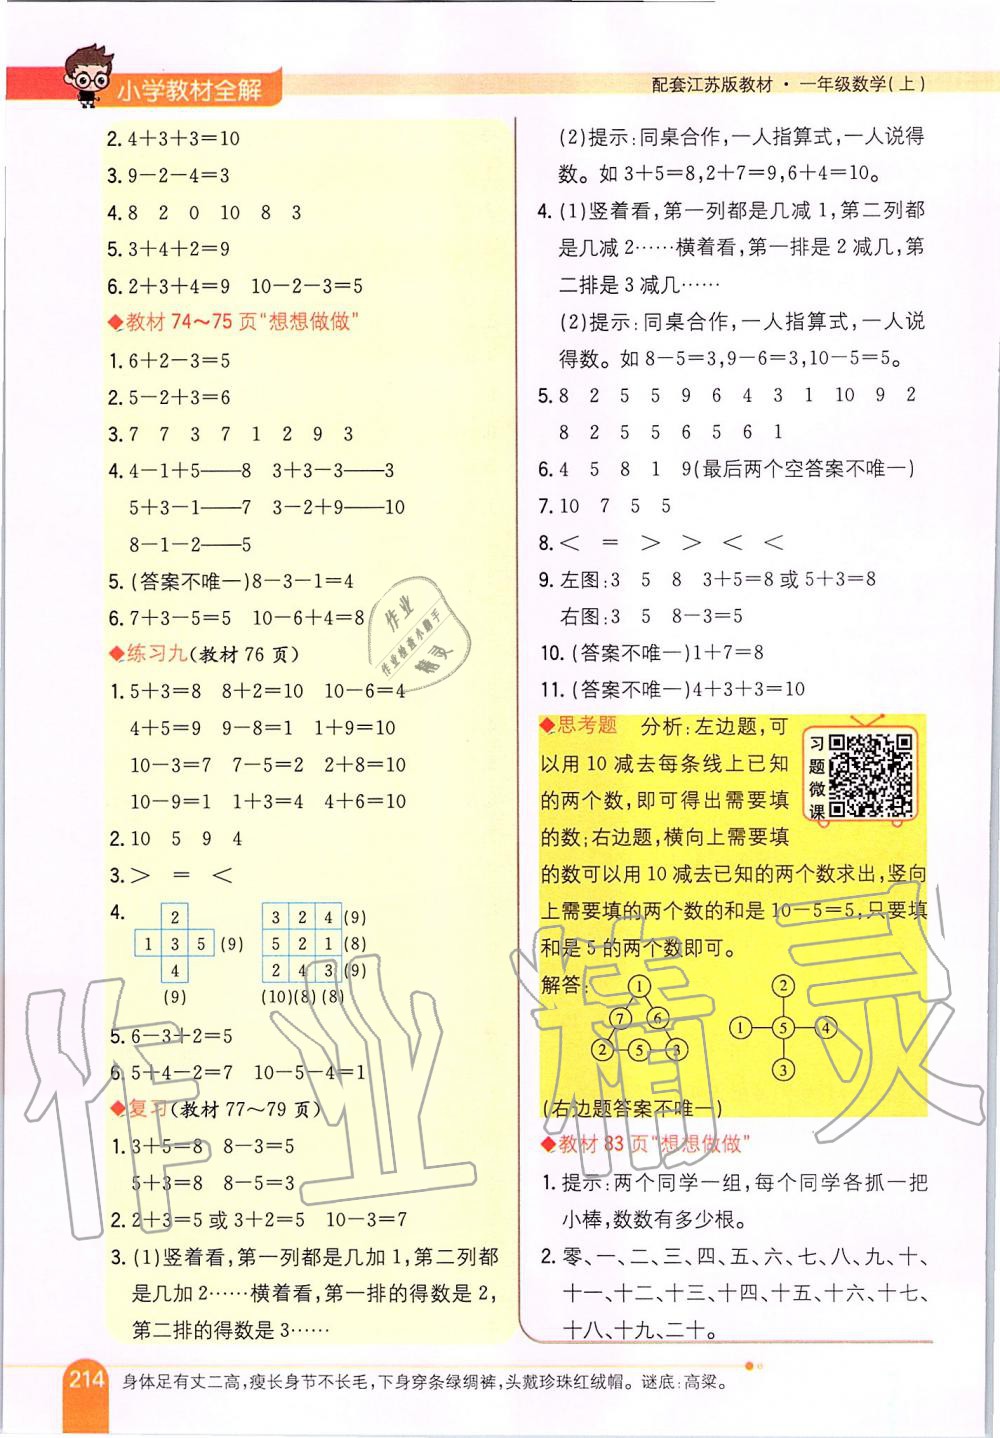 小学教材全解
配套江苏版教材·一年级数学(上)
2. 4+3+3=10
3. 9-2-4=3
4. 8 2 0 10 8 3
5. 3+4+2=9
6. 2+3+4=9 10-2-3=5
◆教材 74~75 页“想想做做”
1. 6+2-3=5
2. 5-2+3=6
3. 7 7 3 7 1 2 9 3
4. 4-1+5——8 3+3-3——3
5+3-1——7 3-2+9——10
8-1-2——5
5. (答案不唯一)8-3-1=4
6. 7+3-5=5 10-6+4=8
◆练习九(教材 76 页)
1. 5+3=8 8+2=10 10-6=4
4+5=9 9-8=1 1+9=10
10-3=7 7-5=2 2+8=10
10-9=1 1+3=4 4+6=10
2. 10 5 9 4
3. > = <
4.
2 3 2 4 (9)
1 3 5 (9) 5 2 1 (8)
4 2 4 3 (9)
(9) (10)(8)(8)
5. 6-3+2=5
6. 5+4-2=7 10-5-4=1
◆复习(教材 77~79 页)
1. 3+5=8 8-3=5
5+3=8 8-5=3
2. 2+3=5 或 3+2=5 10-3=7
3. (1)竖着看,第一列都是几加 1,第二列都
是几加 2……横着看,第一排的得数是 2,
第二排的得数是 3……
(2)提示:同桌合作,一人指算式,一人说得
数。如 3+5=8,2+7=9,6+4=10。
4. (1)竖着看,第一列都是几减 1,第二列都
是几减 2……横着看,第一排是 2 减几,第
二排是 3 减几……
(2)提示:同桌合作,一人指算式,一人说
得数。如 8-5=3,9-6=3,10-5=5。
5. 8 2 5 5 9 6 4 3 1 10 9 2
8 2 5 5 6 5 6 1
6. 4 5 8 1 9(最后两个空答案不唯一)
7. 10 7 5 5
8. < = > > < <
9. 左图:3 5 8 3+5=8 或 5+3=8
右图:3 5 8 8-3=5
10. (答案不唯一)1+7=8
11. (答案不唯一)4+3+3=10
◆思考题 分析:左边题,可
以用 10 减去每条线上已知
的两个数,即可得出需要填
的数;右边题,横向上需要填
的数可以用 10 减去已知的两个数求出,竖向
上需要填的两个数的和是 10-5=5,只要填
和是 5 的两个数即可。
习题微课
解答:
1 2
7 6
1 5 4
2 5 3
3
(右边题答案不唯一)
◆教材 83 页“想想做做”
1. 提示:两个同学一组,每个同学各抓一把
小棒,数数有多少根。
2. 零、一、二、三、四、五、六、七、八、九、十、
十一、十二、十三、十四、十五、十六、十七、
十八、十九、二十。
214
身体足有丈二高,瘦长身节不长毛,下身穿条绿绸裤,头戴珍珠红绒帽。谜底:高粱。
作业
作业检查小助手
精灵
作业精灵